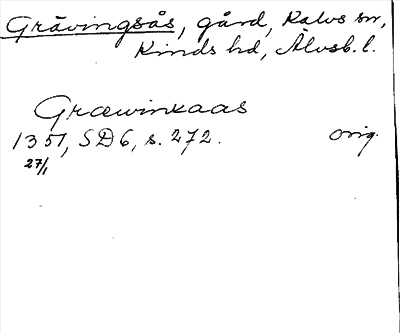 Grävingsås, gård, Kalvs sn,
Kinds hd, Älvsb. l.
Græwinxaas
1351, SD 6, s. 272. orig.
27/1